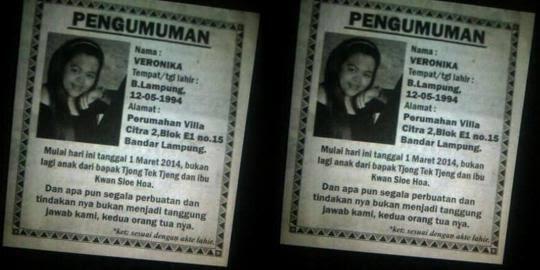 PENGUMUMAN
Nama :
VERONIKA
Tempat/tgl lahir :
B.Lampung,
12-05-1994
Alamat :
Perumahan Villa
Citra 2,Blok E1 no.15
Bandar Lampung.
Mulai hari ini tanggal 1 Maret 2014, bukan
lagi anak dari bapak Tjong Tek Tjeng dan ibu
Kwan Sioe Hoa.
Dan apa pun segala perbuatan dan
tindakan nya bukan menjadi tanggung
jawab kami, kedua orang tua nya.
*ket: sesuai dengan akte lahir.
PENGUMUMAN
Nama :
VERONIKA
Tempat/tgl lahir :
B.Lampung,
12-05-1994
Alamat :
Perumahan Villa
Citra 2,Blok E1 no.15
Bandar Lampung.
Mulai hari ini tanggal 1 Maret 2014, bukan
lagi anak dari bapak Tjong Tek Tjeng dan ibu
Kwan Sioe Hoa.
Dan apa pun segala perbuatan dan
tindakan nya bukan menjadi tanggung
jawab kami, kedua orang tua nya.
*ket: sesuai dengan akte lahir.